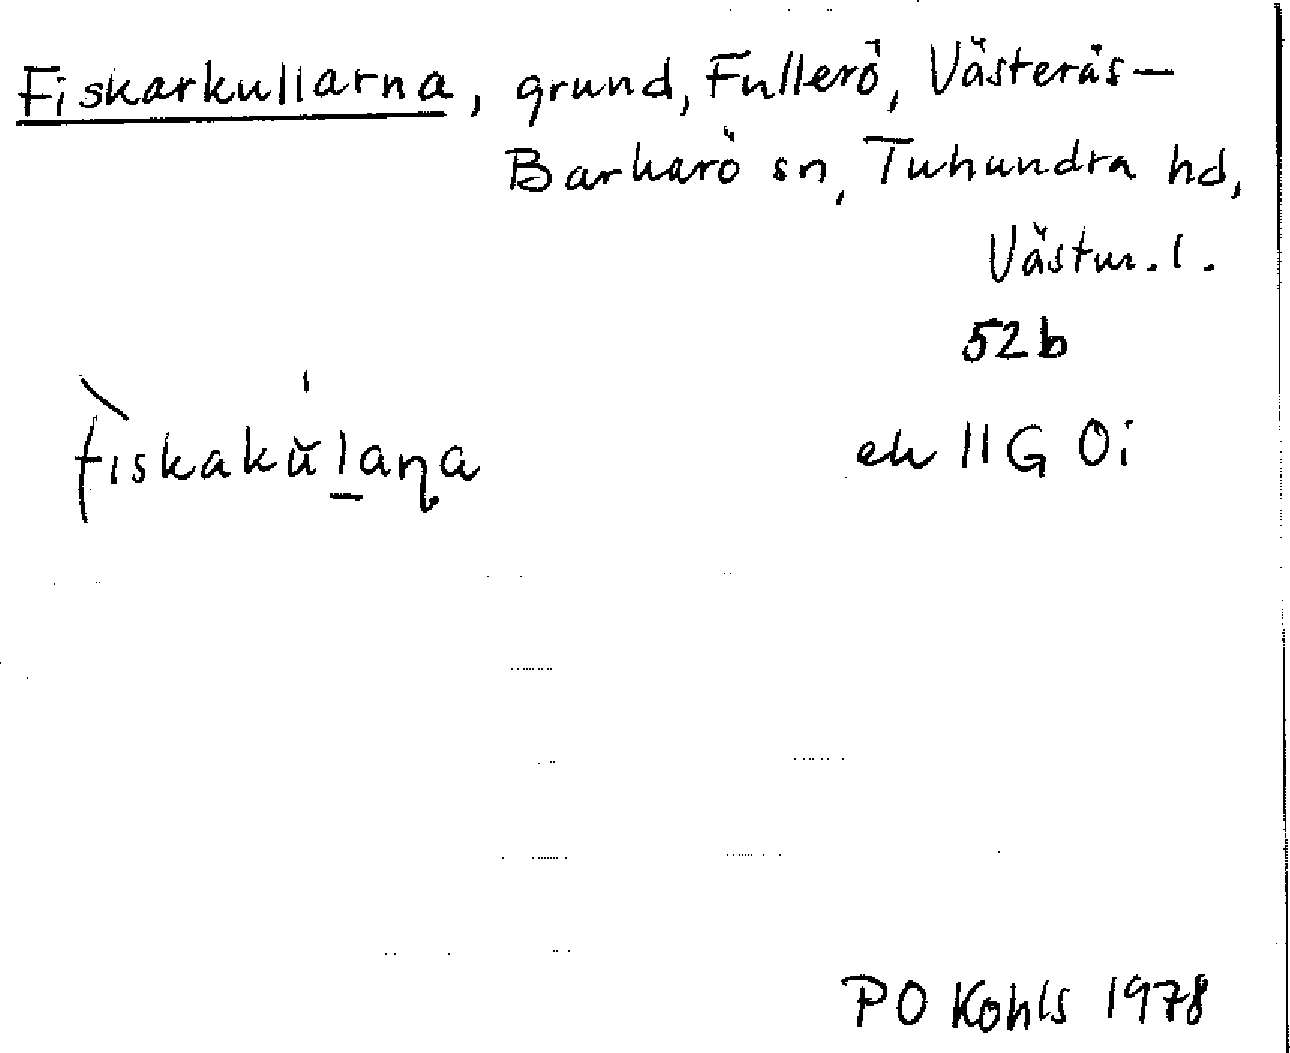 Fiskarkullarna, grund, Fullerö, Västerås-
Barkarö sn, Tuhundra hd,
Västm. l.
52b
fìskakŭ̍l̠aṇa
ek 11G 0i
PO Kohls 1978